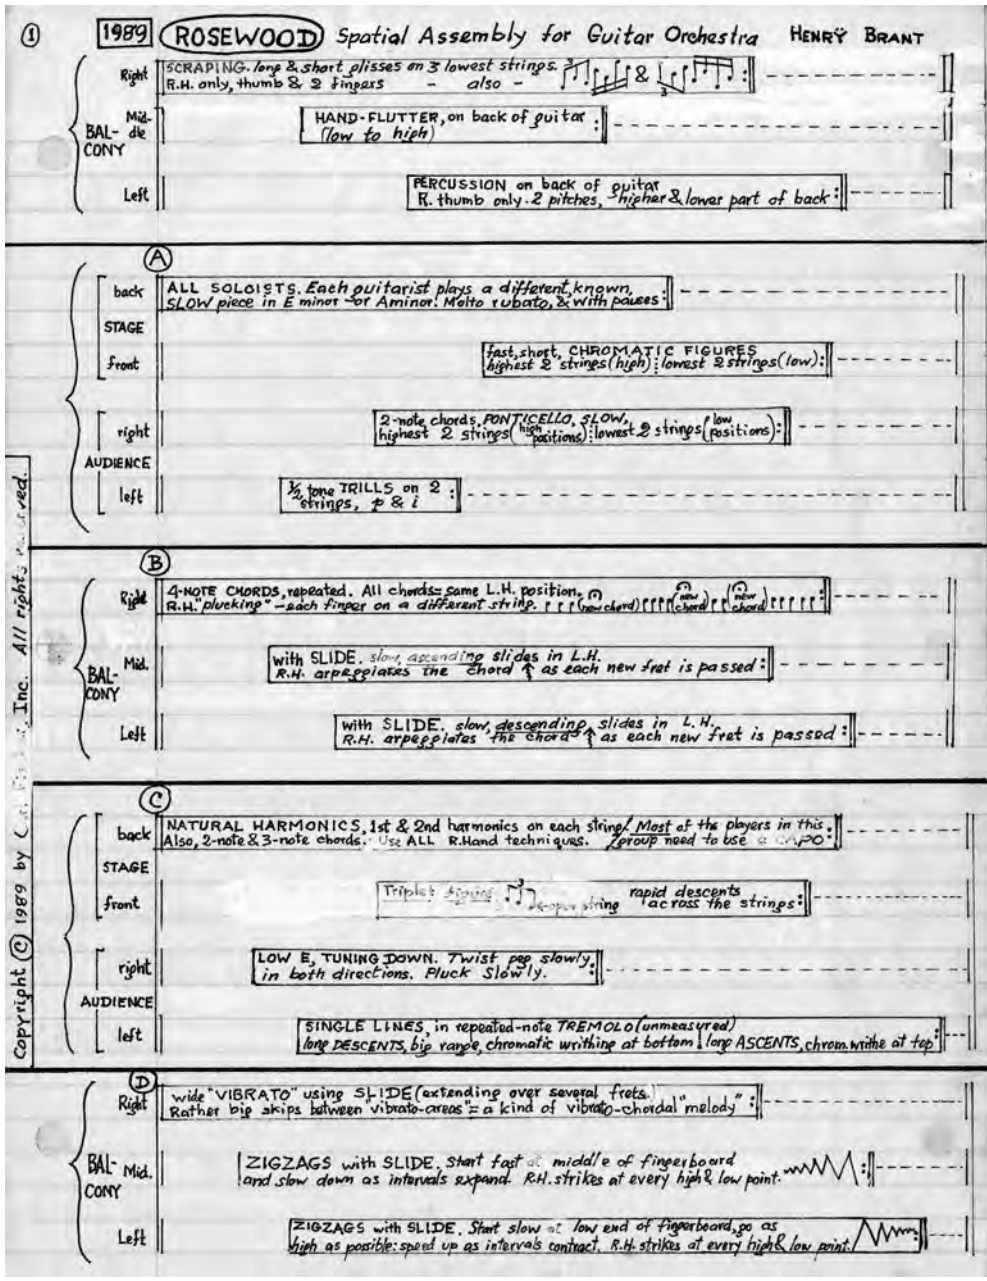 ① 1989 ROSEWOOD Spatial Assembly for Guitar Orchestra HENRY BRANT
Right SCRAPING. long & short glisses on 3 lowest strings.
R.H. only, thumb & 2 fingers - also - & 3
BALCONY
Middle HAND-FLUTTER, on back of guitar
(low to high)
Left PERCUSSION on back of guitar
R. thumb only. 2 pitches, higher & lower part of back
A
STAGE
back ALL SOLOISTS. Each guitarist plays a different, known,
SLOW piece in E minor or A minor! Molto rubato, & with pauses
front fast, short, CHROMATIC FIGURES
highest 2 strings (high) lowest 2 strings (low)
AUDIENCE
right 2-note chords, PONTICELLO, SLOW,
highest 2 strings (high positions) lowest 2 strings (low positions)
left ½ tone TRILLS on 2
strings, p & i
B
Right 4-NOTE CHORDS, repeated. All chords = same L.H. position.
R.H. "plucking" - each finger on a different string. (new chord) (new chord) (new chord)
BALCONY
Mid. with SLIDE. slow, ascending slides in L.H.
R.H. arpeggiates the chord as each new fret is passed
Left with SLIDE. slow, descending slides in L.H.
R.H. arpeggiates the chord as each new fret is passed
C
back NATURAL HARMONICS, 1st & 2nd harmonics on each string / Most of the players in this
Also, 2-note & 3-note chords. Use ALL R.Hand techniques. / group need to use a CAPO
STAGE
front Triplet 3 open string rapid descents
across the strings
AUDIENCE
right LOW E, TUNING DOWN. Twist peg slowly
in both directions. Pluck Slowly.
left SINGLE LINES, in repeated-note TREMOLO (unmeasured)
long DESCENTS, big range, chromatic writhing at bottom long ASCENTS, chrom. writhe at top
D
Right wide "VIBRATO" using SLIDE (extending over several frets.)
Rather big skips between "vibrato-areas" = a kind of vibrato-chordal "melody"
BALCONY
Mid. ZIGZAGS with SLIDE. Start fast at middle of fingerboard
and slow down as intervals expand. R.H. strikes at every high & low point.
Left ZIGZAGS with SLIDE. Start slow at low end of fingerboard, go as
high as possible: speed up as intervals contract. R.H. strikes at every high & low point.
Copyright © 1989 by Inc. All rights reserved.